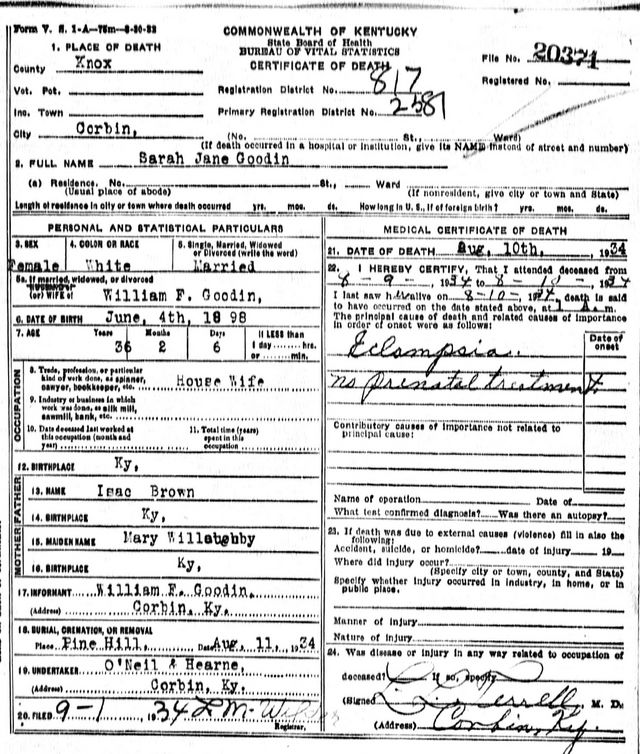 Form V. S. 1-A—75m—8-30-33
COMMONWEALTH OF KENTUCKY
State Board of Health
BUREAU OF VITAL STATISTICS
CERTIFICATE OF DEATH
File No. 20371
Registered No.
1. PLACE OF DEATH
County Knox
Vot. Pct.
Inc. Town
City Corbin,
Registration District No. 817
Primary Registration District No. 2581
(No. St., Ward)
(If death occurred in a hospital or institution, give its NAME instead of street and number)
2. FULL NAME Sarah Jane Goodin
(a) Residence. No. St., Ward
(Usual place of abode) (If nonresident, give city or town and State)
Length of residence in city or town where death occurred yrs. mos. ds. How long in U. S., if of foreign birth? yrs. mos. ds.
PERSONAL AND STATISTICAL PARTICULARS
3. SEX Female
4. COLOR OR RACE White
5. Single, Married, Widowed or Divorced (write the word) Married
5a. If married, widowed or divorced
(or) WIFE of William F. Goodin,
6. DATE OF BIRTH June, 4th, 18 98
7. AGE Years Months Days If LESS than
36 2 6 1 day hrs.
or min.
OCCUPATION
8. Trade, profession, or particular
kind of work done, as spinner,
sawyer, bookkeeper, etc. House Wife
9. Industry or business in which
work was done, as silk mill,
sawmill, bank, etc.
10. Date deceased last worked at
this occupation (month and
year)
11. Total time (years)
spent in this
occupation
12. BIRTHPLACE Ky,
FATHER
13. NAME Isac Brown
14. BIRTHPLACE Ky,
MOTHER
15. MAIDEN NAME Mary Willabghby
16. BIRTHPLACE Ky,
17. INFORMANT William F. Goodin,
(Address) Corbin, Ky.
18. BURIAL, CREMATION, OR REMOVAL
Place Pine Hill, Date Aug, 11, 1934
19. UNDERTAKER O'Neil & Hearne,
(Address) Corbin, Ky.
20. FILED 9-1 1934 L.M.
Registrar.
MEDICAL CERTIFICATE OF DEATH
21. DATE OF DEATH Aug, 10th, 1934
22. I HEREBY CERTIFY, That I attended deceased from
8-9-, 1934 to 8-10-, 1934
I last saw her alive on 8-10-, 1934, death is said
to have occurred on the date stated above, at 1 A. m.
The principal cause of death and related causes of importance
in order of onset were as follows:
Date of onset
Eclampsia.
no prenatal treatment.
Contributory causes of importance not related to
principal cause:
Name of operation Date of
What test confirmed diagnosis? Was there an autopsy?
23. If death was due to external causes (violence) fill in also the
following:
Accident, suicide, or homicide? date of injury 19
Where did injury occur?
(Specify city or town, county, and State)
Specify whether injury occurred in industry, in home, or in
public place.
Manner of Injury
Nature of Injury
24. Was disease or injury in any way related to occupation of
deceased? If so, specify
(Signed M. D.
(Address) Corbin, Ky.